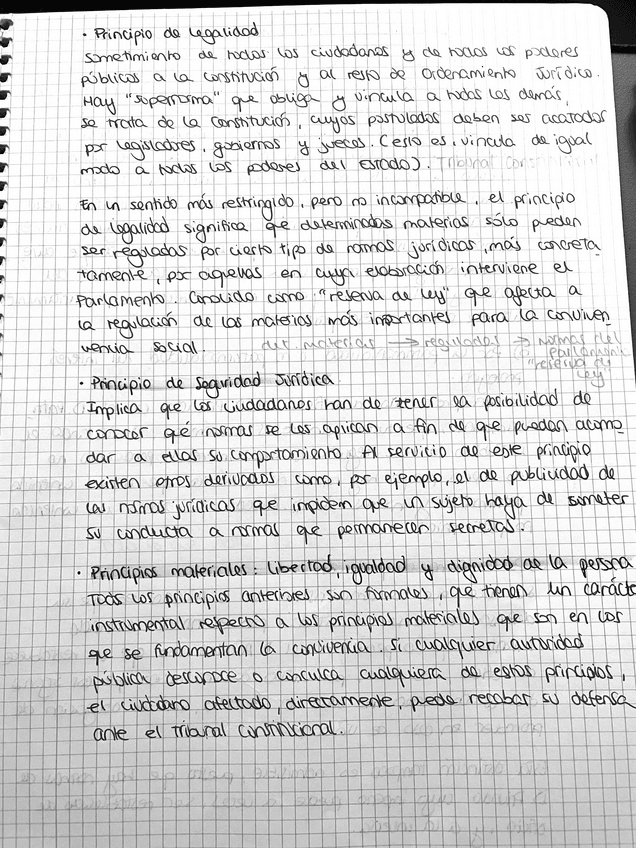 · Principio de legalidad
Sometimiento de todos los ciudadanos y de todos los poderes
públicos a la constitución y al resto de Ordenamiento Jurídico.
Hay "supernorma" que obliga y vincula a todas las demás,
se trata de la constitución, cuyos postulados deben ser acatados
por legisladores, gobiernos y jueces. (esto es, vincula de igual
modo a todos los poderes del Estado). Tribunal Constitucional
En un sentido más restringido, pero no incompatible, el principio
de legalidad significa que determinadas materias sólo pueden
ser reguladas por cierto tipo de normas jurídicas, más concreta
tamente, por aquellas en cuya elaboración interviene el
Parlamento. Conocido como "reserva de ley" que afecta a
la regulación de las materias más importantes para la conviven
vencia social. det. materias → reguladas → normas del
parlamento
"reserva de
ley
· Principio de Seguridad Jurídica
Implica que los ciudadanos han de tener la posibilidad de
conocer qé normas se les aplican a fin de que puedan acomo
dar a ellas su comportamiento. Al servicio de este principio
existen otros derivados como, por ejemplo, el de publicidad de
las normas jurídicas que impiden que un sujeto haya de someter
su conducta a normas que permanecen secretas.
· Principios materiales: libertad, igualdad y dignidad de la persona
Tods los principios anteriores son formales, que tienen un carácte
instrumental respecto a los principios materiales que son en los
que se fundamentan la convivencia. Si cualquier autoridad
pública desconoce o conculca cualquiera de estos principios,
el ciudadano afectado, directamente, puede recabar su defensa
ante el Tribunal Constitucional.